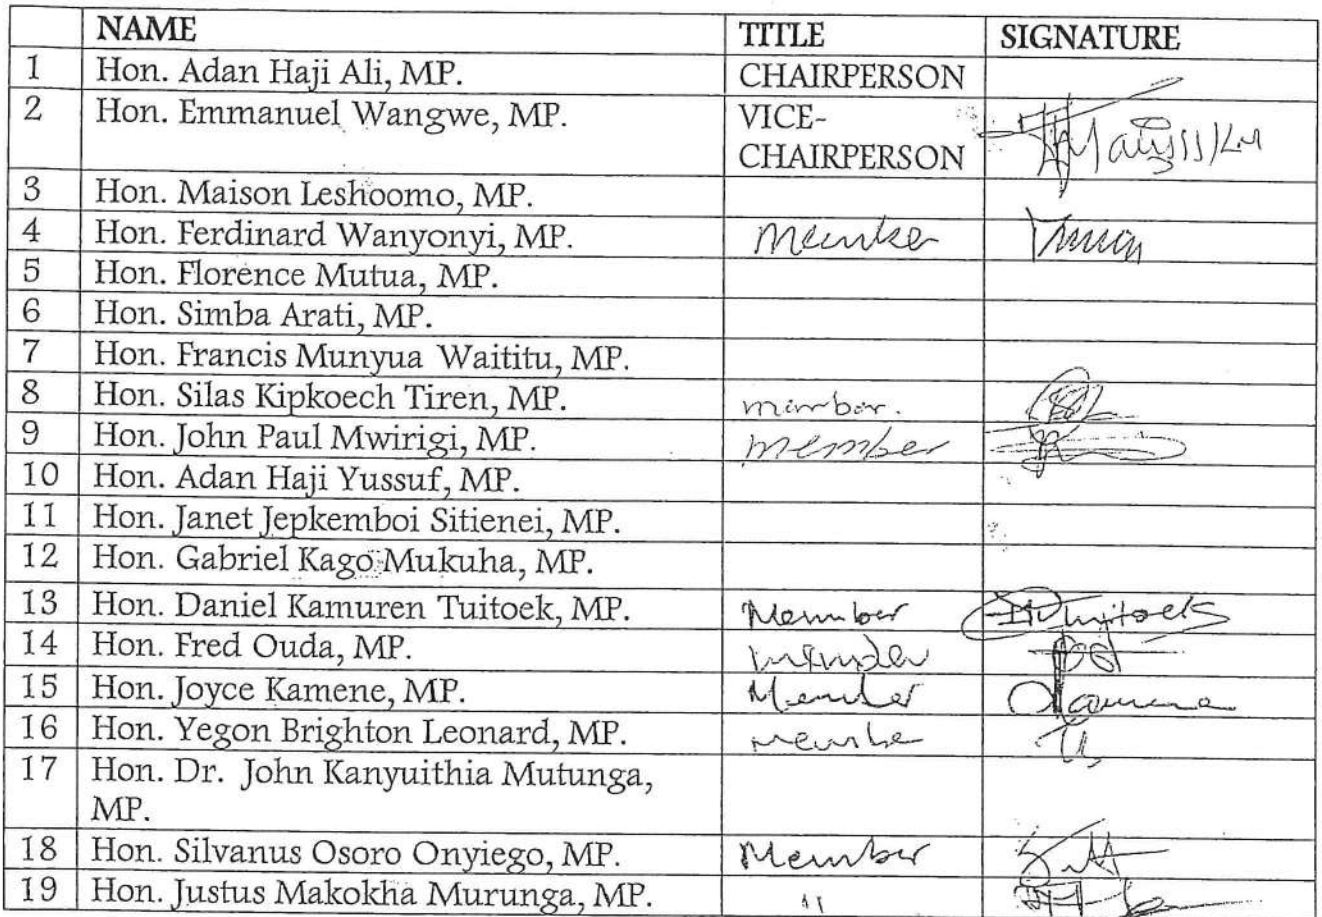 NAME TITLE SIGNATURE
1 Hon. Adan Haji Ali, MP. CHAIRPERSON
2 Hon. Emmanuel Wangwe, MP. VICE-
CHAIRPERSON
3 Hon. Maison Leshoomo, MP.
4 Hon. Ferdinard Wanyonyi, MP. Member
5 Hon. Florence Mutua, MP.
6 Hon. Simba Arati, MP.
7 Hon. Francis Munyua Waititu, MP.
8 Hon. Silas Kipkoech Tiren, MP. member.
9 Hon. John Paul Mwirigi, MP. member
10 Hon. Adan Haji Yussuf, MP.
11 Hon. Janet Jepkemboi Sitienei, MP.
12 Hon. Gabriel Kago Mukuha, MP.
13 Hon. Daniel Kamuren Tuitoek, MP. Member
14 Hon. Fred Ouda, MP. member
15 Hon. Joyce Kamene, MP. Member
16 Hon. Yegon Brighton Leonard, MP. member
17 Hon. Dr. John Kanyuithia Mutunga,
MP.
18 Hon. Silvanus Osoro Onyiego, MP. Member
19 Hon. Justus Makokha Murunga, MP. "